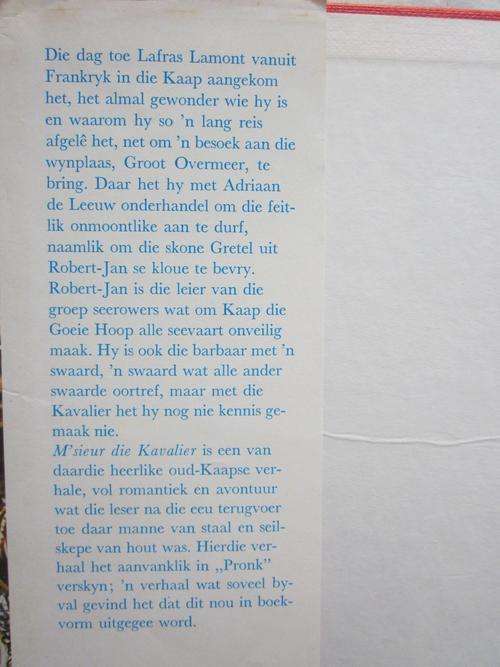 Die dag toe Lafras Lamont vanuit
Frankryk in die Kaap aangekom
het, het almal gewonder wie hy is
en waarom hy so 'n lang reis
afgelê het, net om 'n besoek aan die
wynplaas, Groot Overmeer, te
bring. Daar het hy met Adriaan
de Leeuw onderhandel om die feit-
lik onmoontlike aan te durf,
naamlik om die skone Gretel uit
Robert-Jan se kloue te bevry.
Robert-Jan is die leier van die
groep seerowers wat om Kaap die
Goeie Hoop alle seevaart onveilig
maak. Hy is ook die barbaar met 'n
swaard, 'n swaard wat alle ander
swaarde oortref, maar met die
Kavalier het hy nog nie kennis ge-
maak nie.
M'sieur die Kavalier is een van
daardie heerlike oud-Kaapse ver-
hale, vol romantiek en avontuur
wat die leser na die eeu terugvoer
toe daar manne van staal en seil-
skepe van hout was. Hierdie ver-
haal het aanvanklik in „Pronk”
verskyn; 'n verhaal wat soveel by-
val gevind het dat dit nou in boek-
vorm uitgegee word.